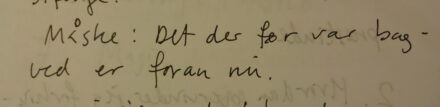 Måske: Det der før var bag-
ved er foran nu.